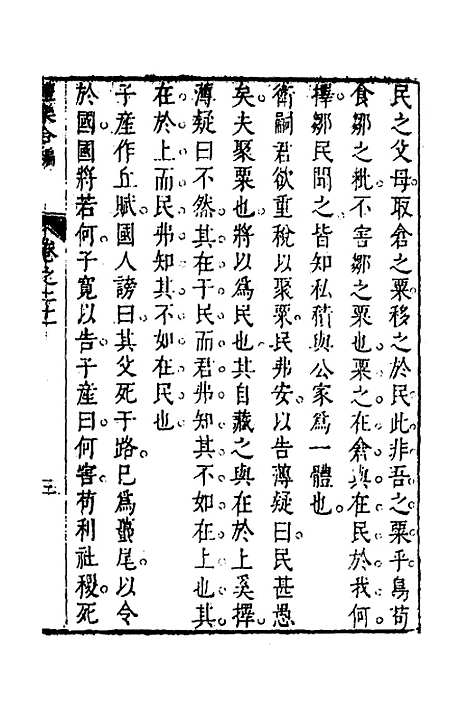 民之父母取倉之粟移之於民此非吾之粟乎鳥苟
食鄒之粃不害鄒之粟也粟之在倉與在民於我何
擇鄒民聞之皆知私積與公家爲一體也
衛嗣君欲重稅以聚粟民弗安以告薄疑曰民甚愚
矣夫聚粟也將以爲民也其自藏之與在於上奚擇
薄疑曰不然其在于民而君弗知其不如在上也其
在於上而民弗知其不如在民也
子產作丘賦國人謗曰其父死于路巳爲蠆尾以令
於國國將若何子寛以告子產曰何害苟利社稷死
合編
卷之二十
三